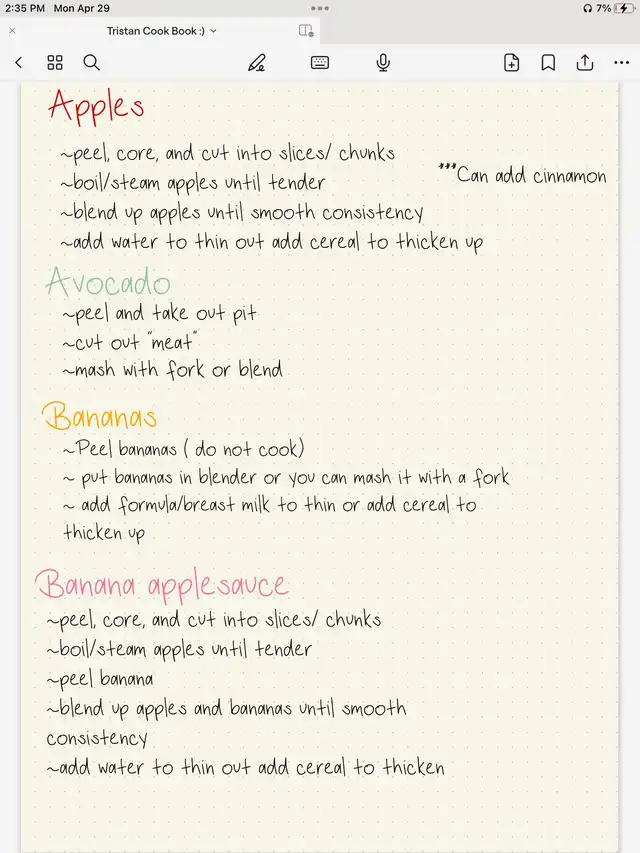 2:35 PM Mon Apr 29
7%
Tristan Cook Book :)
Apples
~peel, core, and cut into slices/ chunks
***Can add cinnamon
~boil/steam apples until tender
~blend up apples until smooth consistency
~add water to thin out add cereal to thicken up
Avocado
~peel and take out pit
~cut out "meat"
~mash with fork or blend
Bananas
~Peel bananas ( do not cook)
~ put bananas in blender or you can mash it with a fork
~ add formula/breast milk to thin or add cereal to
thicken up
Banana applesauce
~peel, core, and cut into slices/ chunks
~boil/steam apples until tender
~peel banana
~blend up apples and bananas until smooth
consistency
~add water to thin out add cereal to thicken